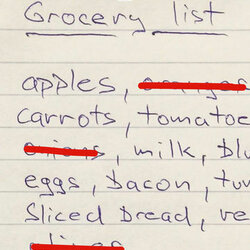 Grocery list
apples,
carrots, tomatoe
, milk, blu
eggs, bacon, tur
Sliced bread, ve